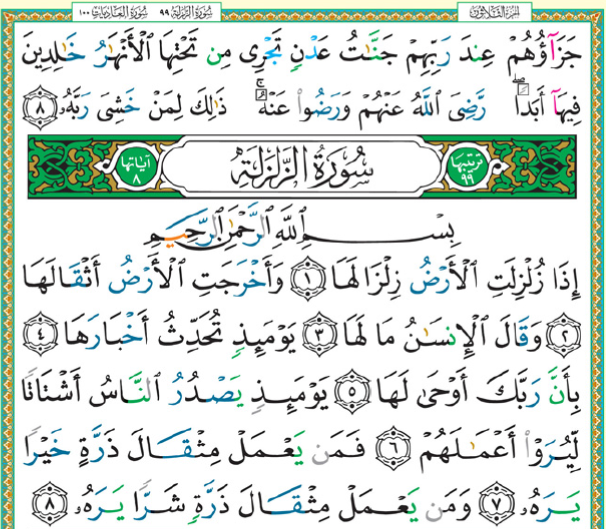 الجزء الثلاثون
سورة الزلزلة ٩٩ سورة العاديات ١٠٠
جَزَآؤُهُمْ عِندَ رَبِّهِمْ جَنَّٰتُ عَدْنٍ تَجْرِى مِن تَحْتِهَا ٱلْأَنْهَٰرُ خَٰلِدِينَ
فِيهَآ أَبَدًاۖ رَّضِىَ ٱللَّهُ عَنْهُمْ وَرَضُوا۟ عَنْهُۚ ذَٰلِكَ لِمَنْ خَشِىَ رَبَّهُۥ ٨
ترتيبها ٩٩ سُورَةُ الزَّلْزَلَةِ آياتها ٨
بِسْمِ ٱللَّهِ ٱلرَّحْمَٰنِ ٱلرَّحِيمِ
إِذَا زُلْزِلَتِ ٱلْأَرْضُ زِلْزَالَهَا ١ وَأَخْرَجَتِ ٱلْأَرْضُ أَثْقَالَهَا
٢ وَقَالَ ٱلْإِنسَٰنُ مَا لَهَا ٣ يَوْمَئِذٍ تُحَدِّثُ أَخْبَارَهَا ٤
بِأَنَّ رَبَّكَ أَوْحَىٰ لَهَا ٥ يَوْمَئِذٍ يَصْدُرُ ٱلنَّاسُ أَشْتَاتًا
لِّيُرَوْا۟ أَعْمَٰلَهُمْ ٦ فَمَن يَعْمَلْ مِثْقَالَ ذَرَّةٍ خَيْرًا
يَرَهُۥ ٧ وَمَن يَعْمَلْ مِثْقَالَ ذَرَّةٍ شَرًّا يَرَهُۥ ٨